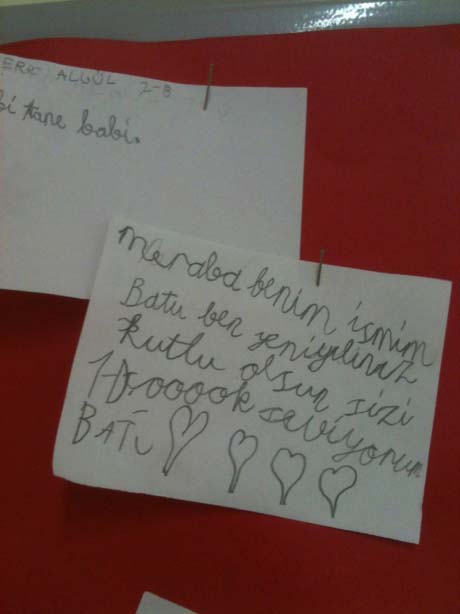 ALGÜL 2-B
bi tane babi.
Meraba benim ismim
Batu ben yeniyılınız
kutlu olsun sizi
1-D:ooook seviyorum.
BATU